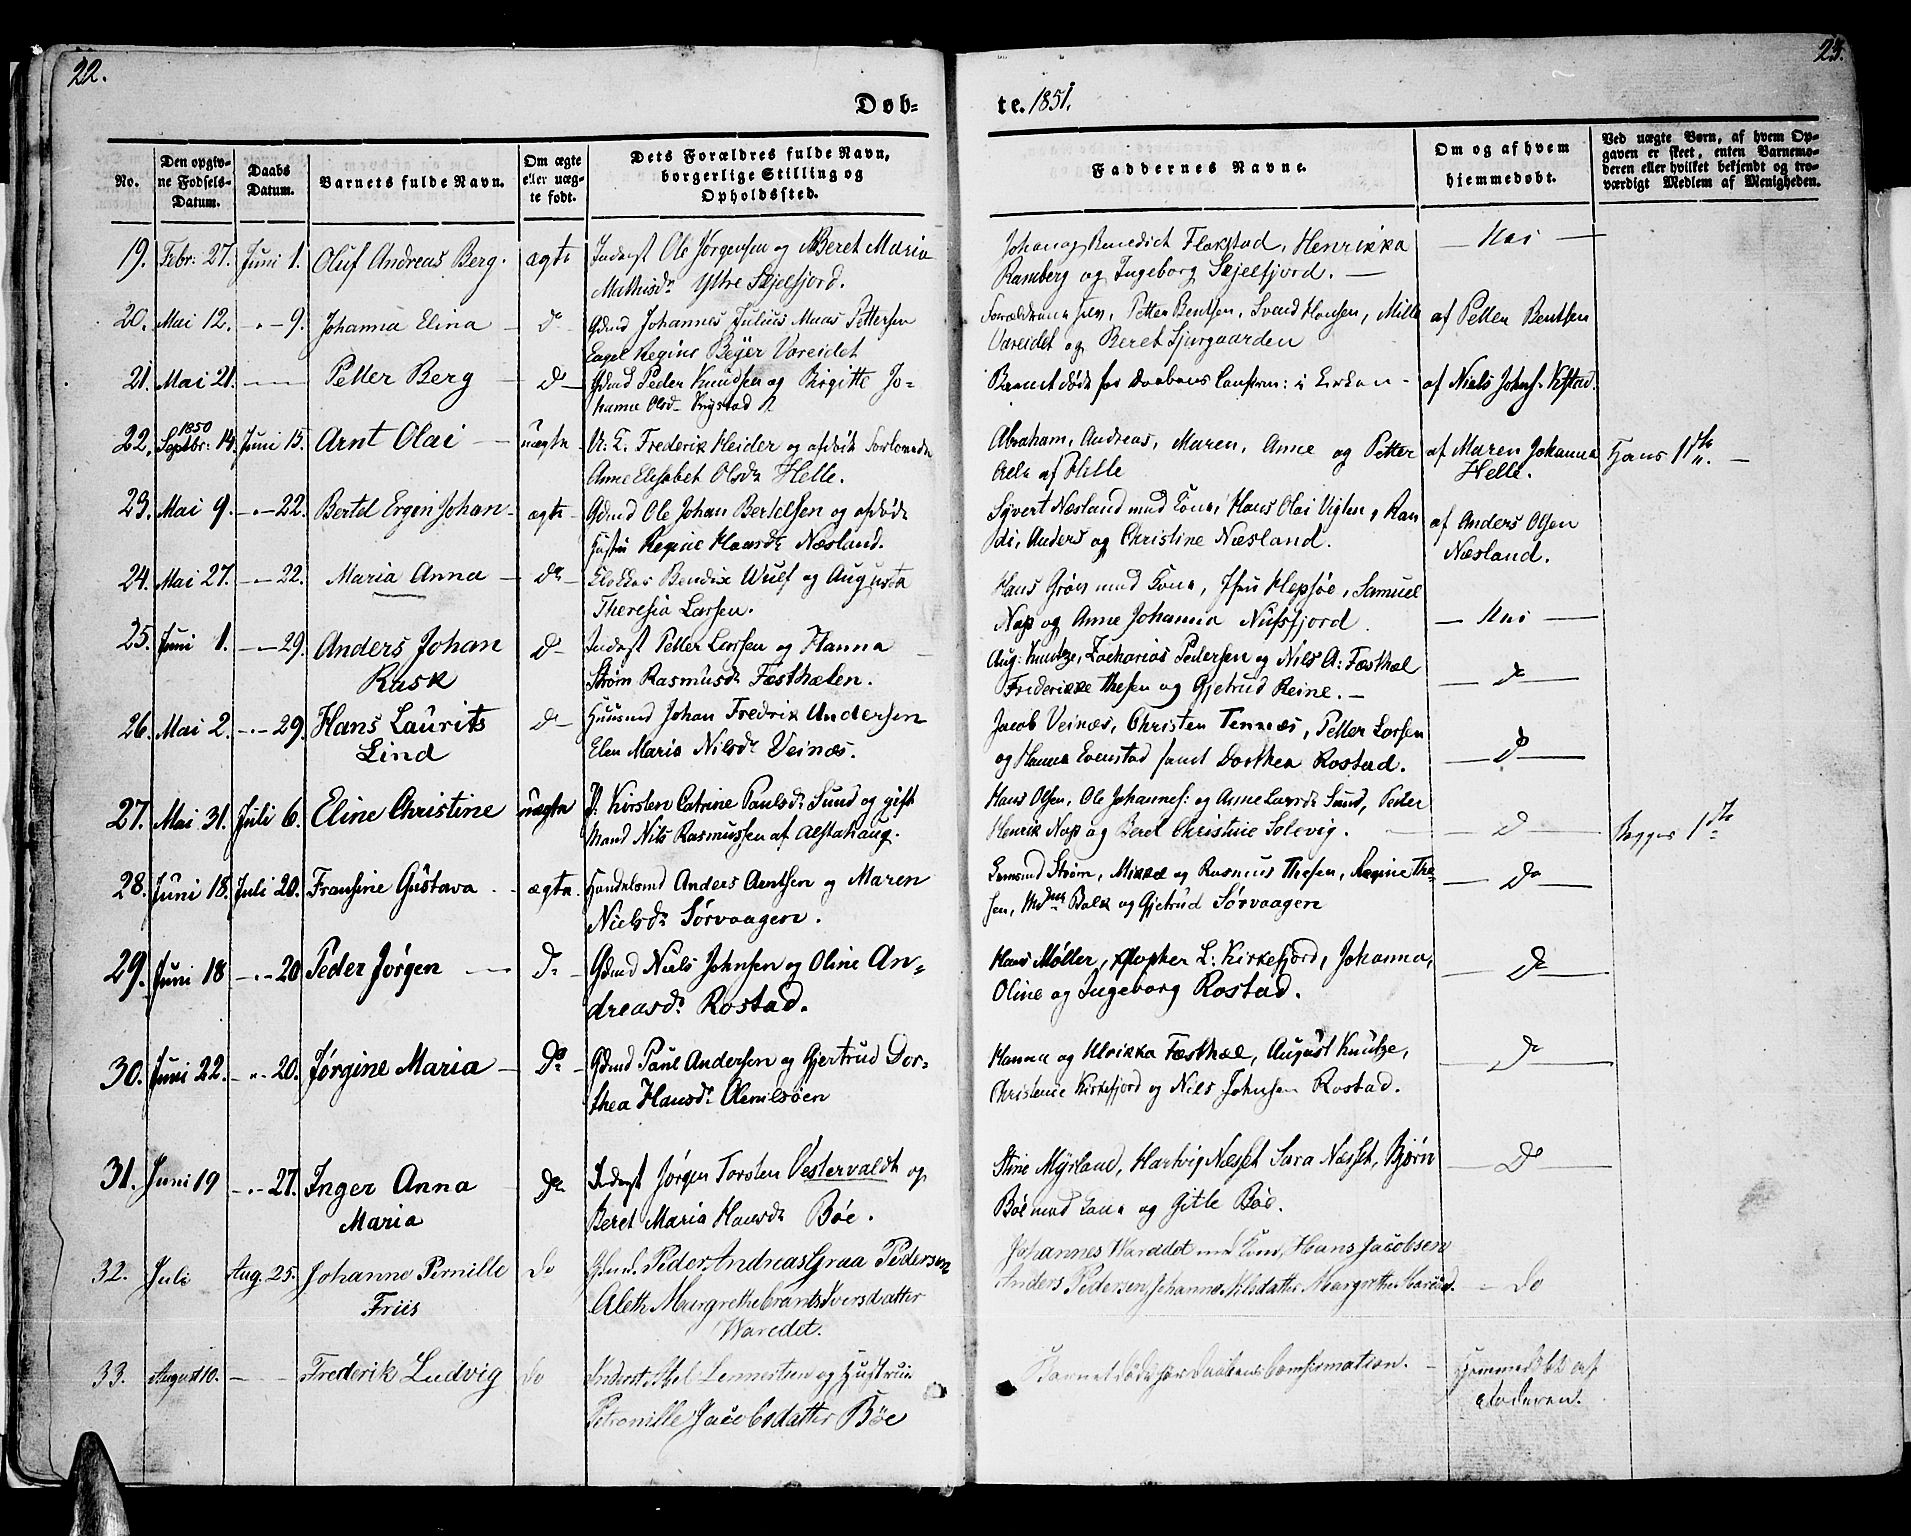 22.
23.
Døb-
te. 1851.
No.
Den opgiv-
ne Fødsels-
Datum.
Daabs
Datum.
Barnets fulde Navn.
Om ægte
eller uæg-
te født.
Dets Forældres fulde Navn,
borgerlige Stilling og
Opholdssted.
Faddernes Navne.
Om og af hvem
hjemmedøbt.
Ved uægte Børn, af hvem Op-
gaven er skeet, enten Barnemo-
deren eller hvilket bekjendt og tro-
værdigt Medlem af Menigheden.
19. Febr: 27. Juni 1. Oluf Andreas Berg. ægte Inderst Ole Jørgensen og Beret Maria
Mathisdr Yttre Skjelfjord.
Johan og Benedict Flakstad, Henrikka
Ramberg og Ingeborg Skjelfjord. — Nei —
20. Mai 12. -"- 9. Johanna Elina — do Gdmd Johannes Julius Maas Pettersen
Engel Regine Beÿer Vareidet
Forældrene selv, Petter Bentsen, Svend Hansen, Mille
Vareidet og Beret Sjurgaarden
af Petter Bentsen
21. Mai 21. — Petter Berg — do Gdmd Peder Knudsen og Birgitte Jo-
hanne Olsdr
Barnet døde før Daabens Confirm: i Kirken -
af Niels Johns.
22. 1850 Septbr: 14. Juni 15. Arnt Olai — uægte U: K. Frederik Heider og afdøde
Anne Elisabet Olsdr Helle.
Abraham, Andreas, Maren, Anne og Petter
alle af Helle
af Maren Johanna
Helle.
Hans 1ste
23. Mai 9. -"- 22. Bertel Ergen Johan - ægte Gdmd Ole Johan Bertelsen og afdøde
Hustru Regine Hansdr Næsland.
Sivert Næsland med Kone, Hans Olai Vigten, Ran
di, Anders og Christine Næsland.
af Anders Olsen
Næsland.
24. Mai 27. -"- 22. Maria Anna — do Klokker Bendix Wulf og Augusta
Theresia Larsen.
Hans Grøn med Kone, Samuel
Nap og Anne Johanna Nufsfjord
— Nei —
25. Juni 1. -"- 29. Anders Johan
Rask
do Inderst Petter Larsen og Hanna
Strøm Rasmusdr Fæsthælen.
Aug: Knutze, Zacharias Pedersen og Nils A: Fæsthæl
Frederikke Thesen og Gjetrud Reine. —
— do —
26. Mai 2. -"- 29. Hans Laurits
Lind
do Huusmd Johan Fredrik Andersen
Elen Maria Nilsdr Veinæs.
Jacob Veinæs, Christen Tennæs, Petter Larsen
og Hanna Evenstad samt Dorthea Rostad.
— do —
27. Mai 31. Juli 6. Eline Christine uægte P. Kirsten Catrine Paulsdr Sund og gift
Mand Nils Rasmussen af Alstahaug.
Hans Olsen, Ole Johannes: og Anne Larsdr Sund, Peder
Henrik Nap og Beret Christine Solevig.
— do —
Begges 1ste
28. Juni 18. Juli 20. Fransine Gustava - ægte Handelsmd Anders Arntsen og Maren
Nielsdr Sørvaagen.
Strøm, Mikkel og Rasmus Thesen, Regine The-
sen, Balk og Gjetrud Sørvaagen
— do —
29. Juni 18 -"- 20 Peder Jørgen — do Gdmd Niels Johnsen og Oline An-
dreasdr Rostad.
Hans Møller, L: Kirkefjord, Johanna,
Oline og Ingeborg Rostad.
— do —
30. Juni 22. -"- 20. Jørgine Maria — do Gdmd Paul Andersen og Gjertrud Dor-
thea Hansdr Olenilsøen
Hanna og Ulrikka Fæsthæl, August Knutze,
Christense Kirkefjord og Nils Johnsen Rostad.
— do —
31. Juni 19 -"- 27. Inger Anna
Maria
do Inderst Jørgen Torsten Vestervaldt og
Beret Maria Hansdr Bøe.
Stine Mÿrland, Hartvig Næsset, Sara Næsset, Bjørn
Bøe med Kone og Gitle Bøe.
— do —
32. Juli Aug. 25. Johanne Pernille
Friis
do Gdmd. Peder Andreas Graa Pedersen
Aleth Margrethe Crants Iversdatter
Waredet.
Johannes Waredet med Kone, Hans Jacobsen
Anders Pedersen, Johanna Nilsdatter Margrethe
— do
33. August 10. — Frederik Ludvig do Inderst Abel Lennertsen og Hustrue
Petronille Jacobsdatter Bøe
Barnet døde før Daabens Comfirmation. —
Hjemmedøbt af
Faderen.